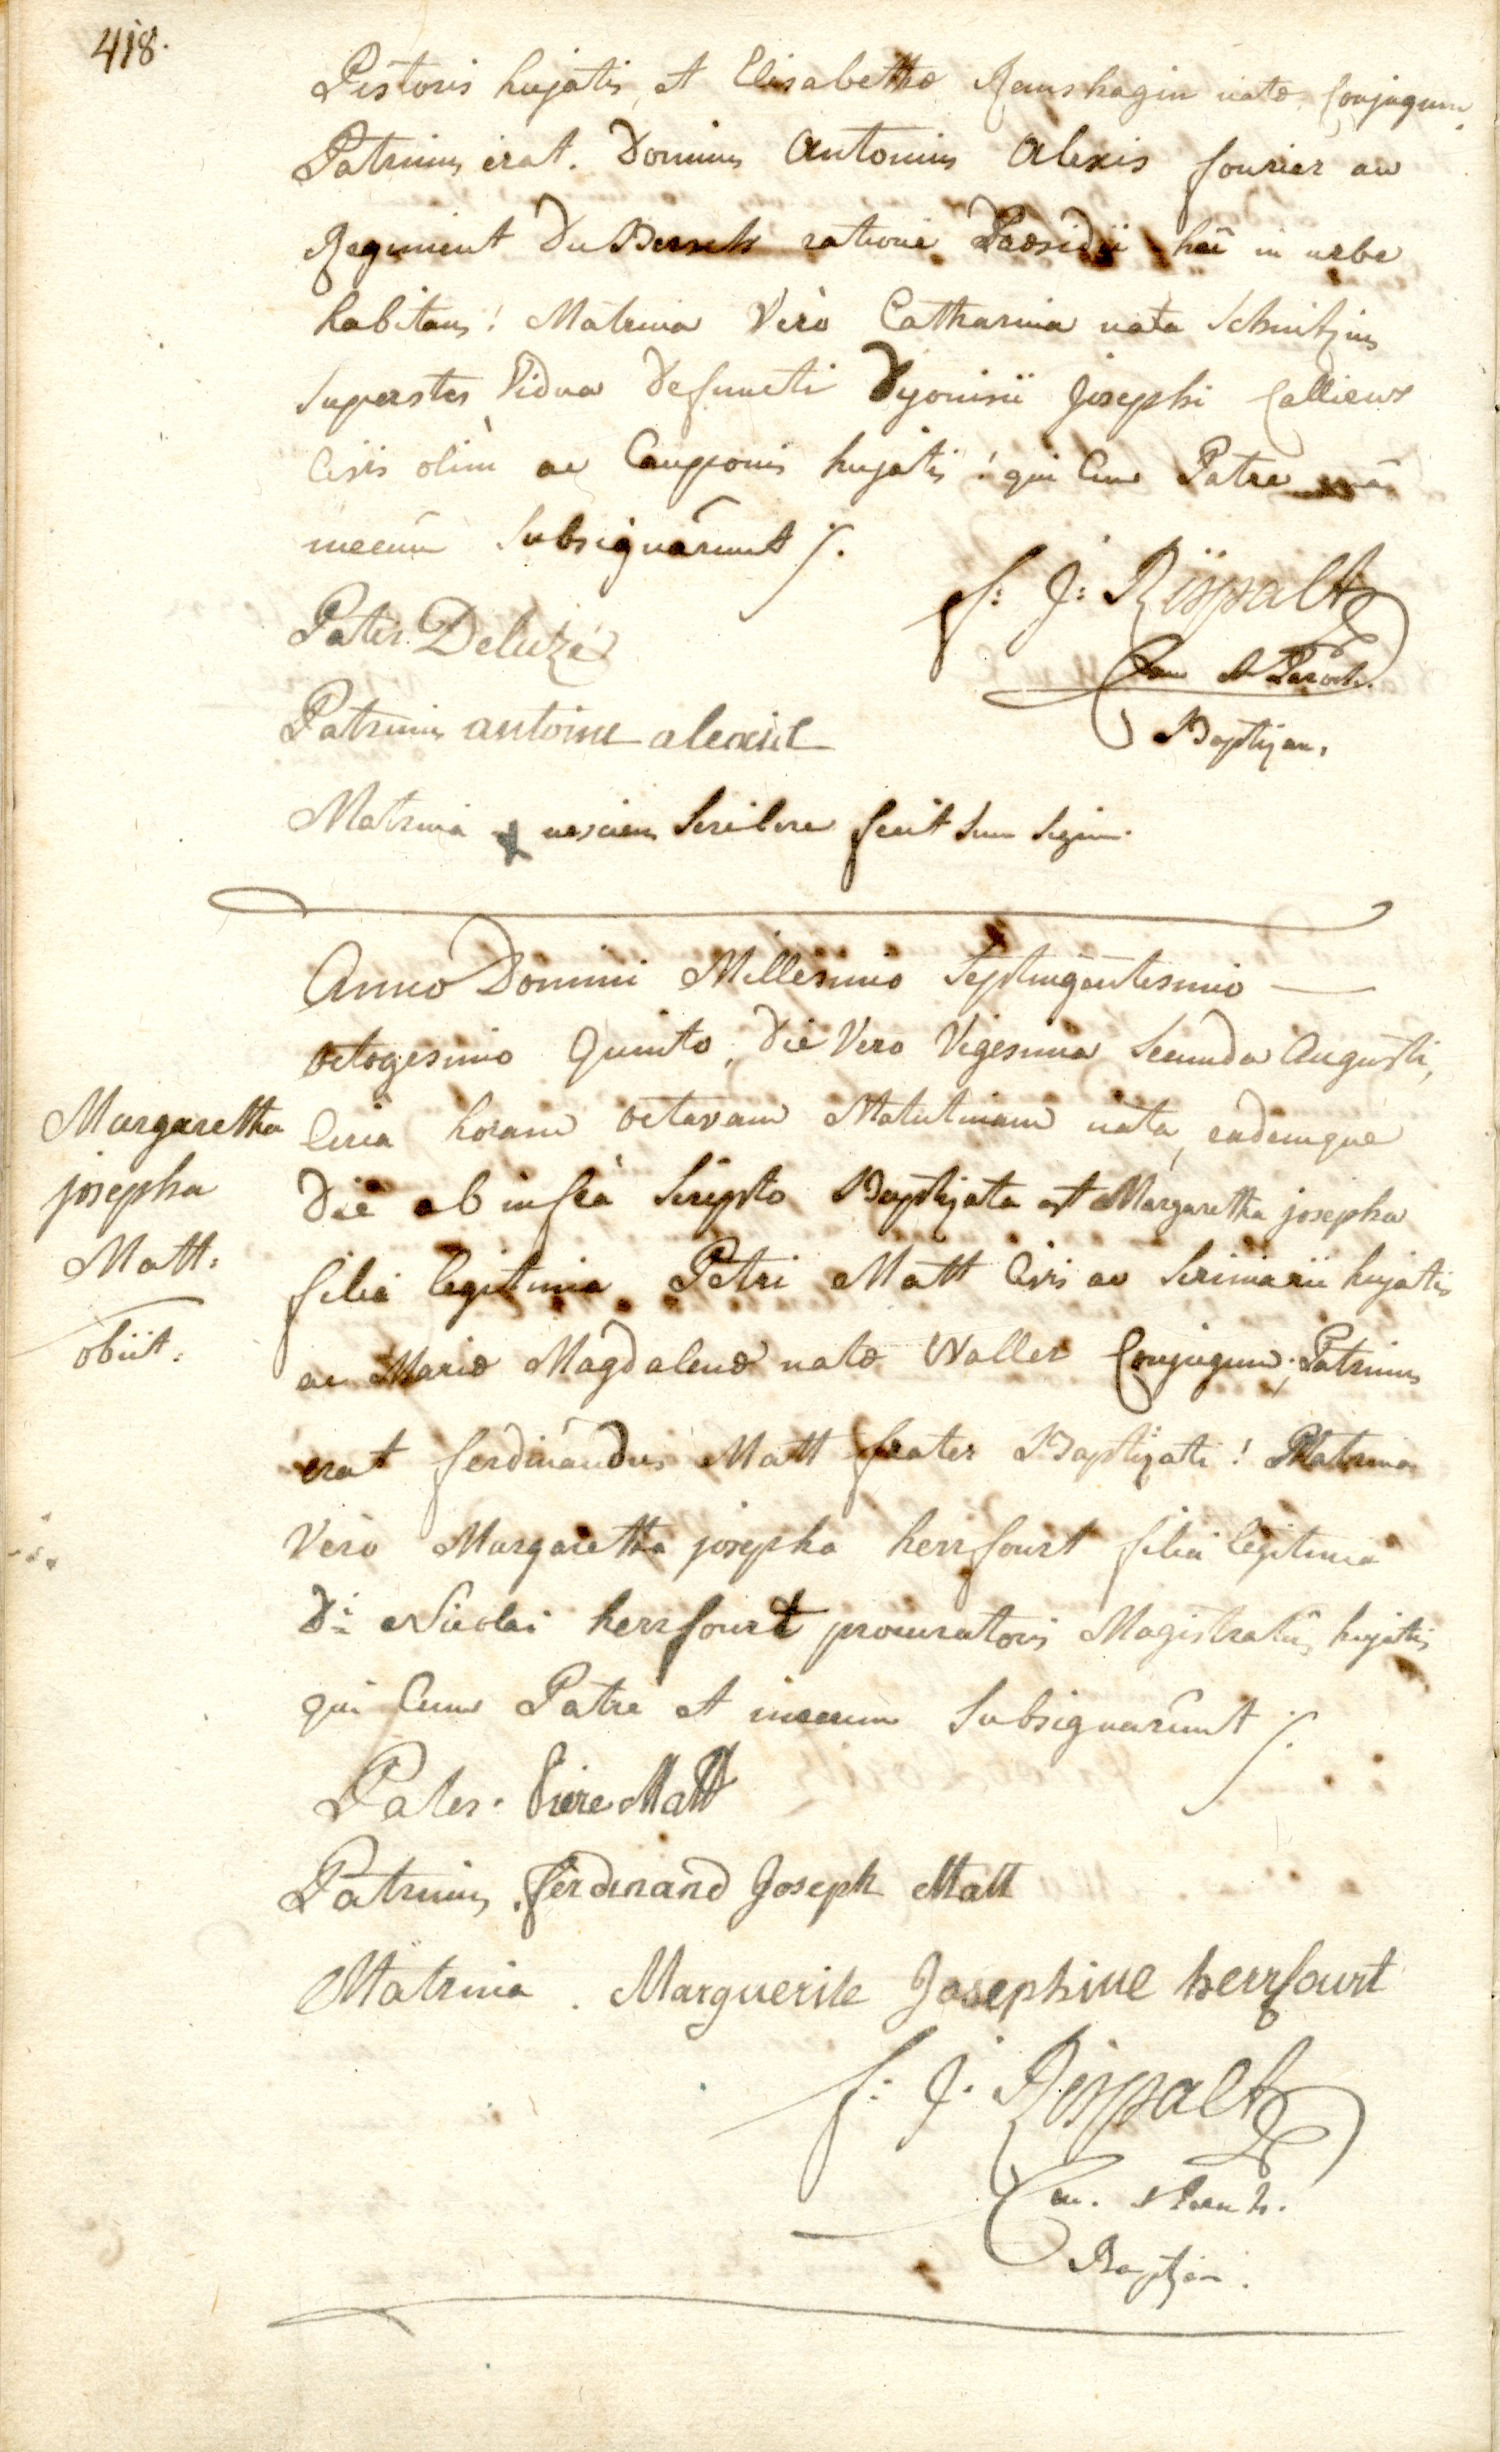 418.
Pistoris hujatis, et Elisabethæ natæ Conjugum,
Patrinus erat. Dominus Antonius Alexis fourier au
Regiment Du ratione Præsidii hac in urbe
habitans! Matrina Verò Catharina nata Schnitzius
Superstes Vidua Defuncti Dyonisii Josephi
Civis olim ac Cauponis hujatis! qui Cum Patre
mecum Subsignârunt /.
Pater. Deluzé
f: J: Rispalt
Can. et Paroch.
Patrinus antoine alexis
Baptizans.
Matrina + nesciens Scribere fecit Suum Signum.
Anno Domini Millesimo Septingentesimo —
octogesimo Quinto, Die Vero Vigesima Secunda Augusti,
Circa horam octavam Matutinam nata, eademque
Die ab infrà Scripto Baptizata est Margaretha josepha
filia legitima Petri Matt Civis ac Scriniarii hujatis
ac Mariæ Magdalenæ natæ Waller Conjugum; Patrinus
erat ferdinandus Matt frater Baptizati! Matrina
Verò Margaretha josepha herrfourt filia legitima
Di: Nicolai herrfourt procuratoris Magistratûs hujatis
qui Cum Patre et mecum Subsignarûnt /.
Margaretha
josepha
Matt:
obiit.
Pater. Piere Matt
Patrinus. ferdinand Joseph Matt
Matrina. Marguerite Josephine herrfourt
f: J: Rispalt
Can.
Baptizans.